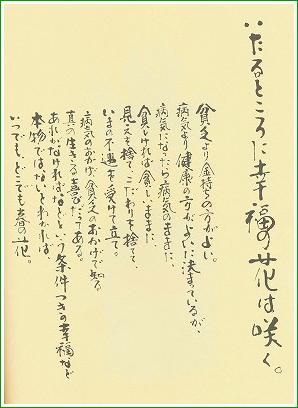 いたるところに幸福の花は咲く。
貧乏より金持ちの方がよい。
病気より健康の方がよいに決まっているが、
病気になったら病気のままに、
貧しければ貧しいままに、
見えを捨て、こだわりを捨てて、
いまの不遇を受けて立て。
病気のおかげ、貧乏のおかげで知る
真の生きる喜びだってある。
あれがなければなどという条件つきの幸福など
本物ではないとわかれば、
いつでも、どこでも春の花。